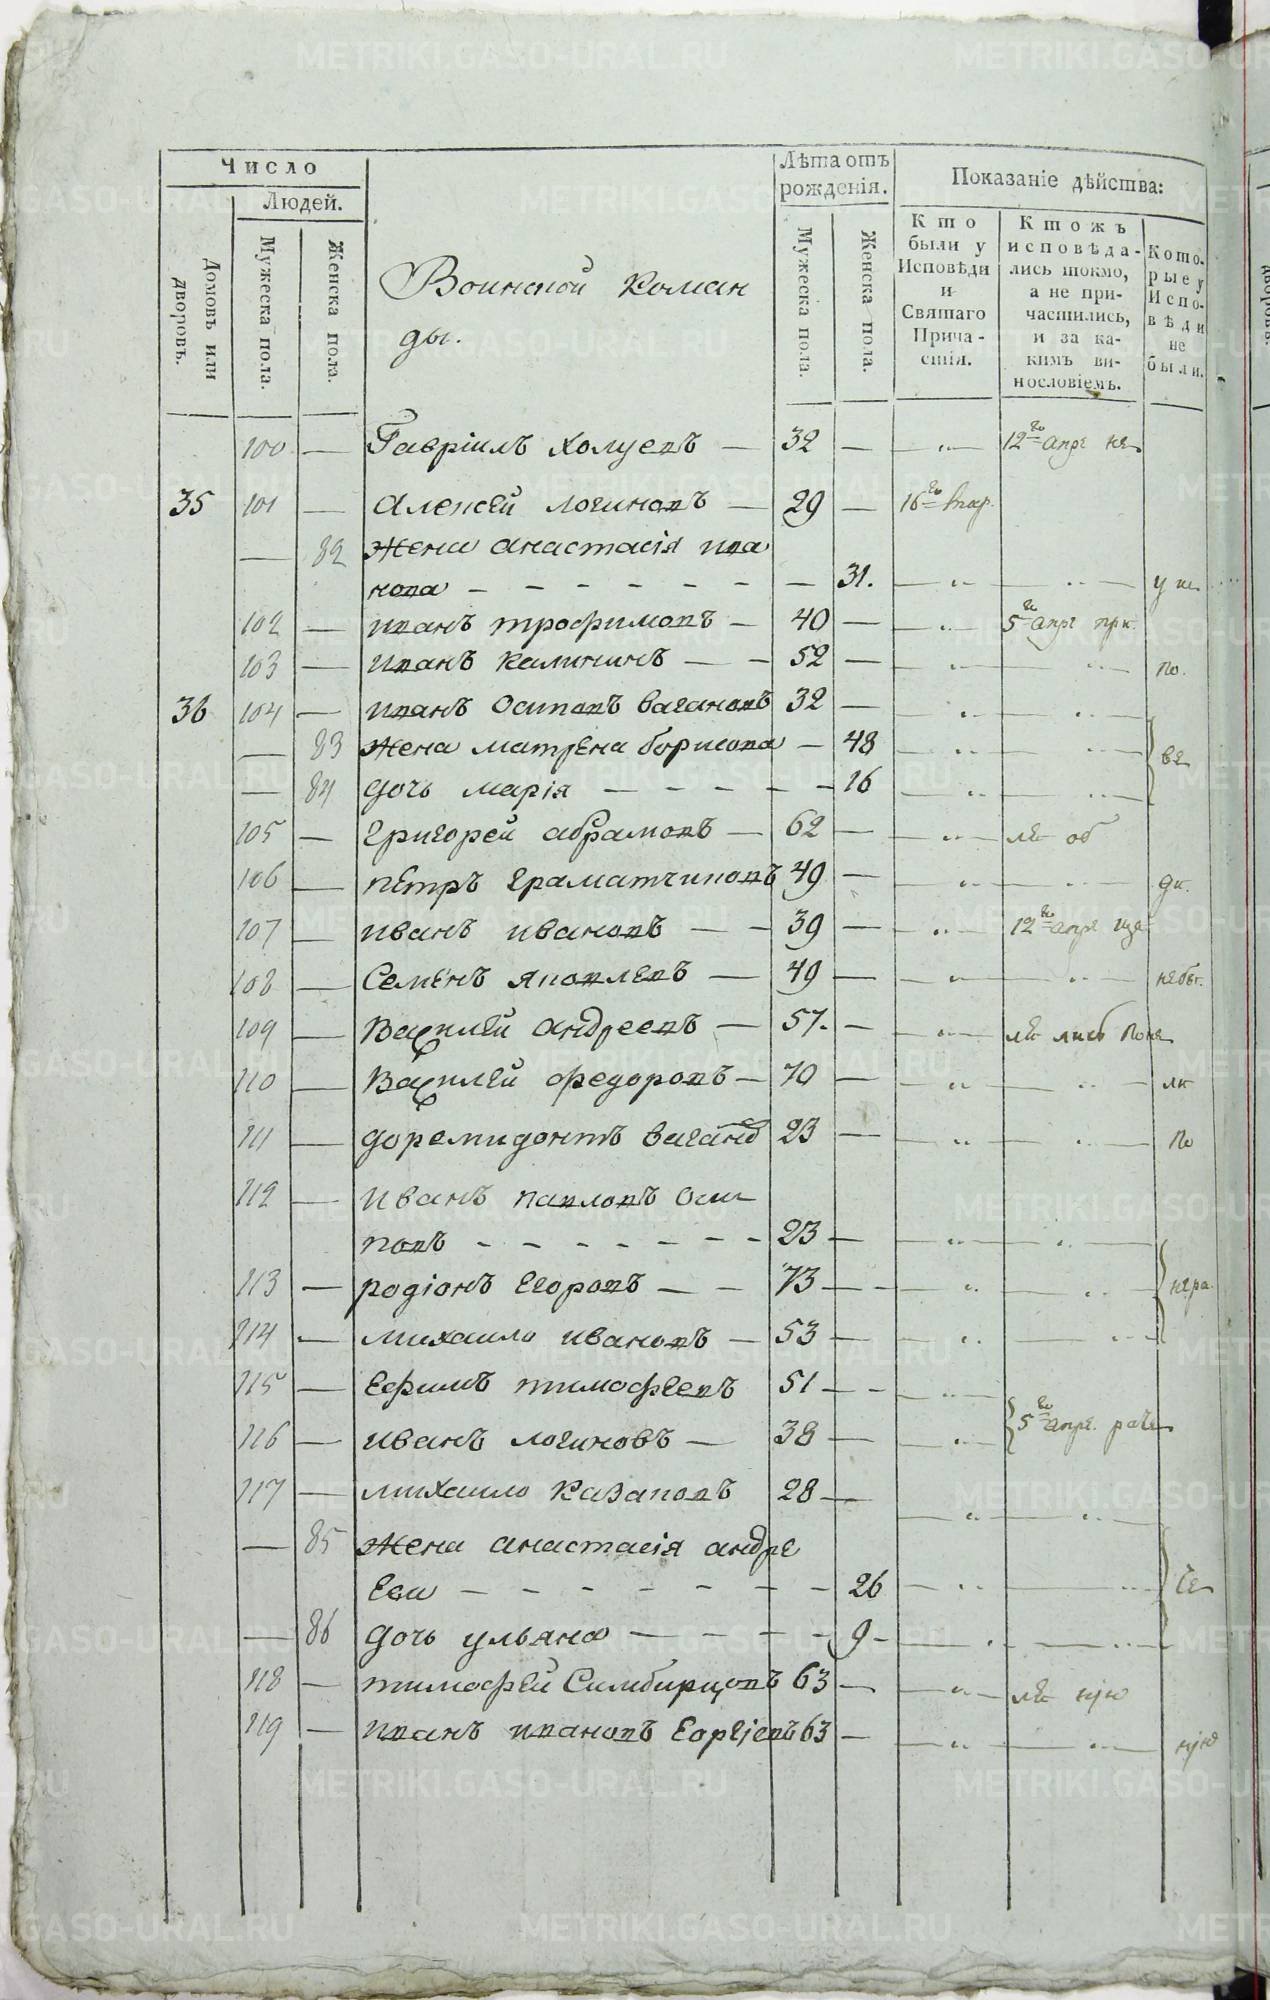 Число
Людей.
Домовъ или дворовъ.
Мужеска пола.
Женска пола.
Лѣта отъ рожденія.
Мужеска пола.
Женска пола.
Показаніе дѣйства:
Кто были у Исповѣди и Святаго Причастія.
Ктожъ исповѣдались токмо, а не причастились, и за какимъ винословіемъ.
Которые у Исповѣди не были.
Воинской Коман
ды.
100 — Гавріилъ Холуевъ — 32 — 12го апре не
35 101 — Алексей Логиновъ — 29 — 16го
— 82 Жена Анастасія Ива
нова — 31.
102 — Иванъ Трофимовъ — 40 — 5го апре прк.
103 — Иванъ Калининъ — 52 — по.
36 104 — Иванъ Осиповъ Вагановъ 32 —
— 83 Жена Матрена Борисова — 48 ве
— 84 Дочь Марія — 16
105 — Григорей Абрамовъ — 62 — об
106 — Петръ Граматчиковъ 49 — дк.
107 — Иванъ Ивановъ — 39 — 12го апре
108 — Семенъ Яковлевъ — 49 —
109 — Василей Андреевъ — 57. —
110 — Василей Федоровъ — 70 — лк
111 — Доремидонтъ Ваганов 23 — по
112 — Иванъ Павловъ Оси
повъ — 23 —
113 — Родіонъ Егоровъ — 73 —
114 — Михаило Ивановъ — 53 —
115 — Ефимъ Тимофеевъ 51 —
116 — Иванъ Логиновъ — 38 — 5го апре.
117 — Михаило Казаковъ 28 —
— 85 Жена Анастасія Андре
ева — 26
— 86 Дочь Ульяна — 9 —
118 — Тимофей Симбирцовъ 63 —
119 — Иванъ Ивановъ 63 —
METRIKI.GASO-URAL.RU